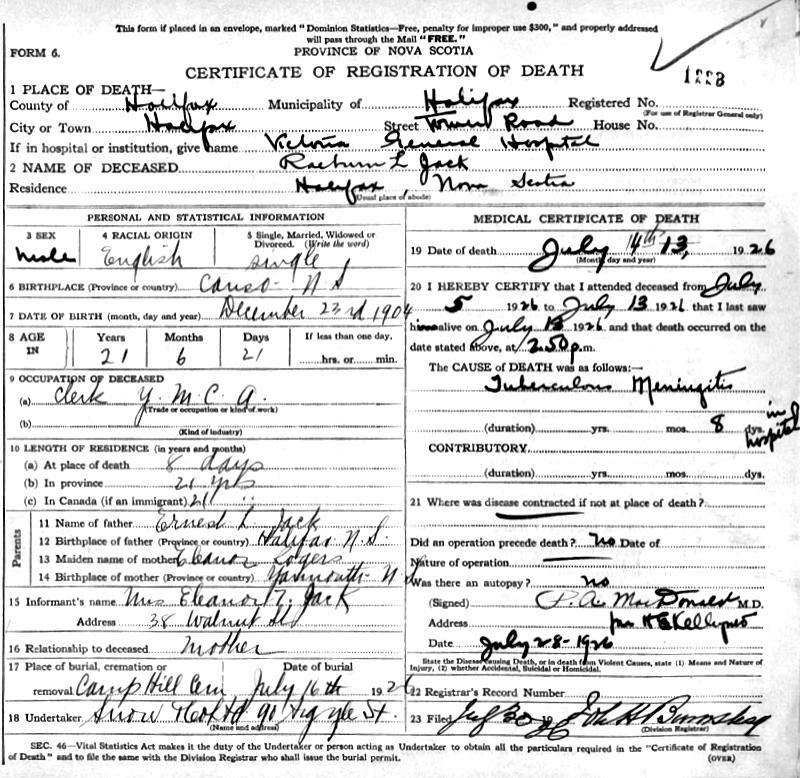 This form if placed in an envelope, marked "Dominion Statistics—Free, penalty for improper use $300," and properly addressed
will pass through the Mail "FREE."
FORM 6.
PROVINCE OF NOVA SCOTIA
CERTIFICATE OF REGISTRATION OF DEATH
1223
1 PLACE OF DEATH—
County of Halifax Municipality of Halifax Registered No.
(For use of Registrar General only)
City or Town Halifax Street Tower Road House No.
If in hospital or institution, give name Victoria General Hospital
2 NAME OF DECEASED Raeburn L Jack
Residence Halifax, Nova Scotia
(Usual place of abode)
PERSONAL AND STATISTICAL INFORMATION
3 SEX
Male
4 RACIAL ORIGIN
English
5 Single, Married, Widowed or
Divorced. (Write the word)
single
6 BIRTHPLACE (Province or country) Canso - N S
7 DATE OF BIRTH (month, day and year) December 23rd 1904
8 AGE IN
Years Months Days If less than one day.
21 6 21 hrs. or min.
9 OCCUPATION OF DECEASED
(a) Clerk Y. M. C. A.
(Trade or occupation or kind of work)
(b)
(Kind of industry)
10 LENGTH OF RESIDENCE (in years and months)
(a) At place of death 8 days
(b) In province 21 yrs
(c) In Canada (if an immigrant) 21 "
Parents
11 Name of father Ernest L Jack
12 Birthplace of father (Province or country) Halifax N S.
13 Maiden name of mother Eleanor Rogers
14 Birthplace of mother (Province or country) Yarmouth - N S
15 Informant's name Mrs Eleanor Jack
Address 38 Walnut St
16 Relationship to deceased mother
17 Place of burial, cremation or Date of burial
removal Camp Hill Cem July 16th 1926
18 Undertaker Snow & Co Ltd 90 Argyle St.
(Name and address)
MEDICAL CERTIFICATE OF DEATH
19 Date of death July 14th 13, 1926
(Month, day and year)
20 I HEREBY CERTIFY that I attended deceased from July
5 1926 to July 13 1926 that I last saw
him alive on July 13 1926 and that death occurred on
date stated above, at 2.50 p.m.
The CAUSE of DEATH was as follows:—
Tuberculous Meningitis
(duration) yrs. mos. 8 dys. in hospital
CONTRIBUTORY
(duration) yrs. mos. dys.
21 Where was disease contracted if not at place of death?
Did an operation precede death? no Date of
Nature of operation
Was there an autopsy? no
(Signed) P. A. MacDonald M.D.
Address
Date July 28-1926
State the Disease Causing Death, or in death from Violent Causes, state (1) Means and Nature of
Injury, (2) whether Accidental, Suicidal or Homicidal.
22 Registrar's Record Number
23 Filed
(Division Registrar)
SEC. 46—Vital Statistics Act makes it the duty of the Undertaker or person acting as Undertaker to obtain all the particulars required in the "Certificate of Registration
of Death" and to file the same with the Division Registrar who shall issue the burial permit.
(OVER)